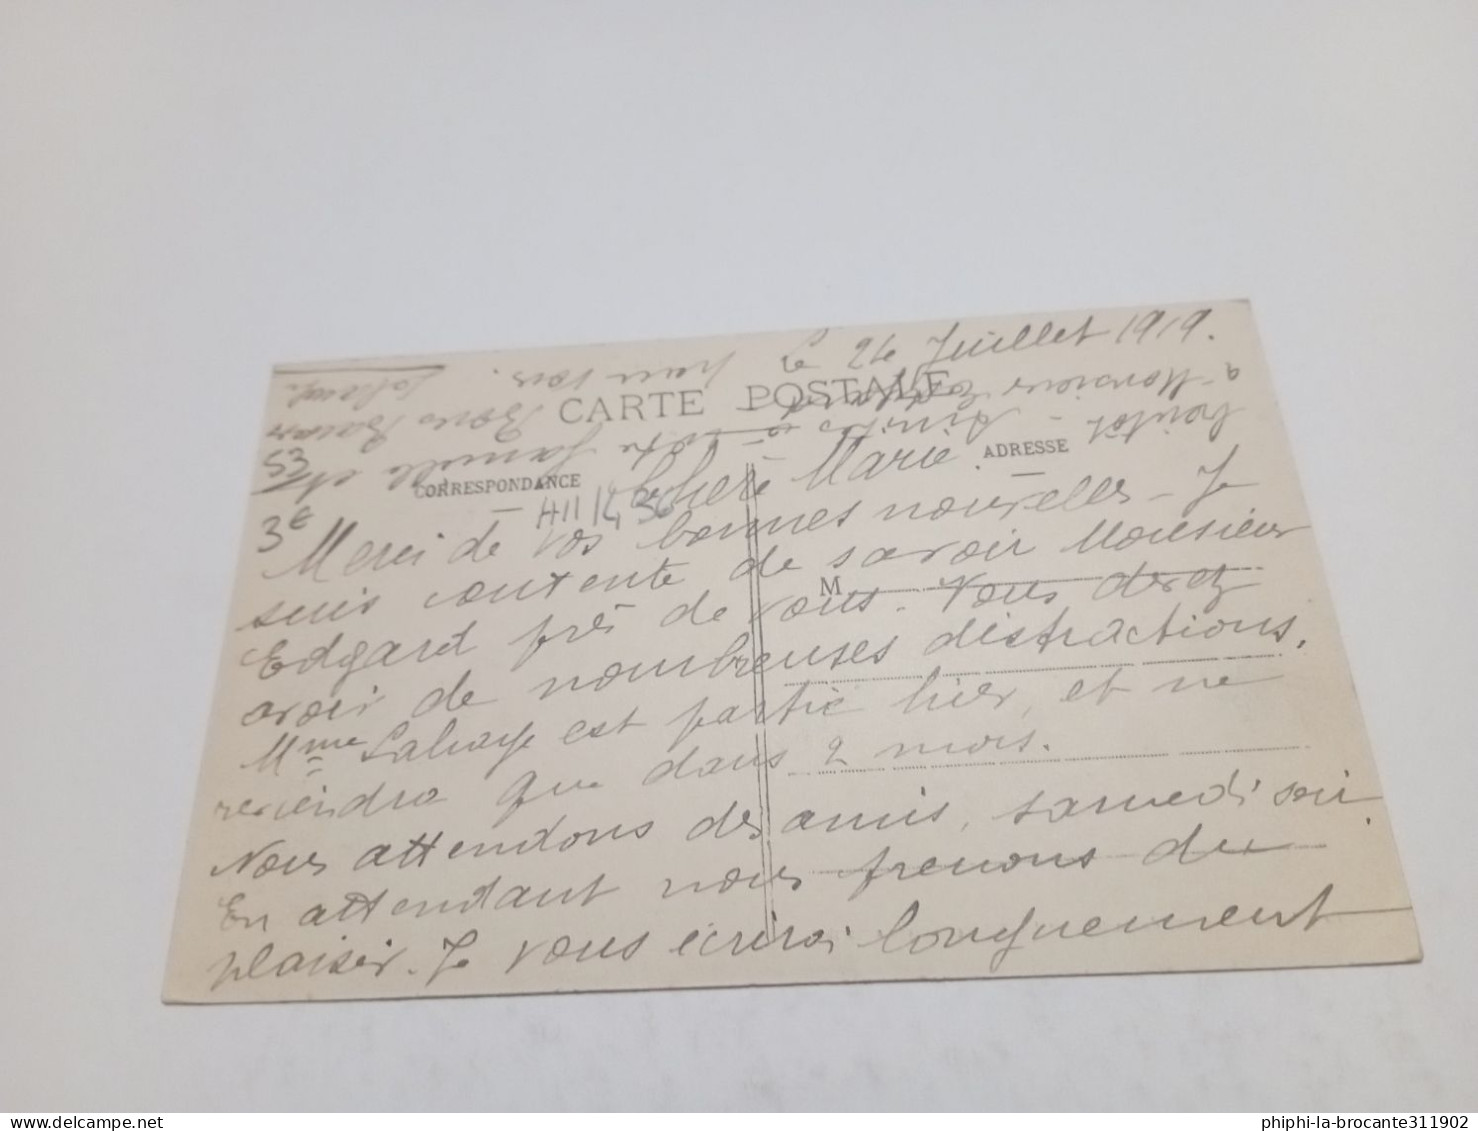 Le 24 Juillet 1919.
CARTE POSTALE
CORRESPONDANCE
ADRESSE
53
3€
Chère Marie
Merci de vos bonnes nouvelles - Je
suis contente de savoir Monsieur
Edgard près de vous. Vous devez
avoir de nombreuses distractions.
M
Mme Lahaye est partie hier, et ne
reviendra que dans 2 mois.
Nous attendons des amis, samedi soir
En attendant nous prenons du
plaisir. Je vous écrirai longuement
bientôt -
à Monsieur Edgard
Amitiés à votre famille et
Bons Baisers
pour vous.
phiphi-la-brocante311902